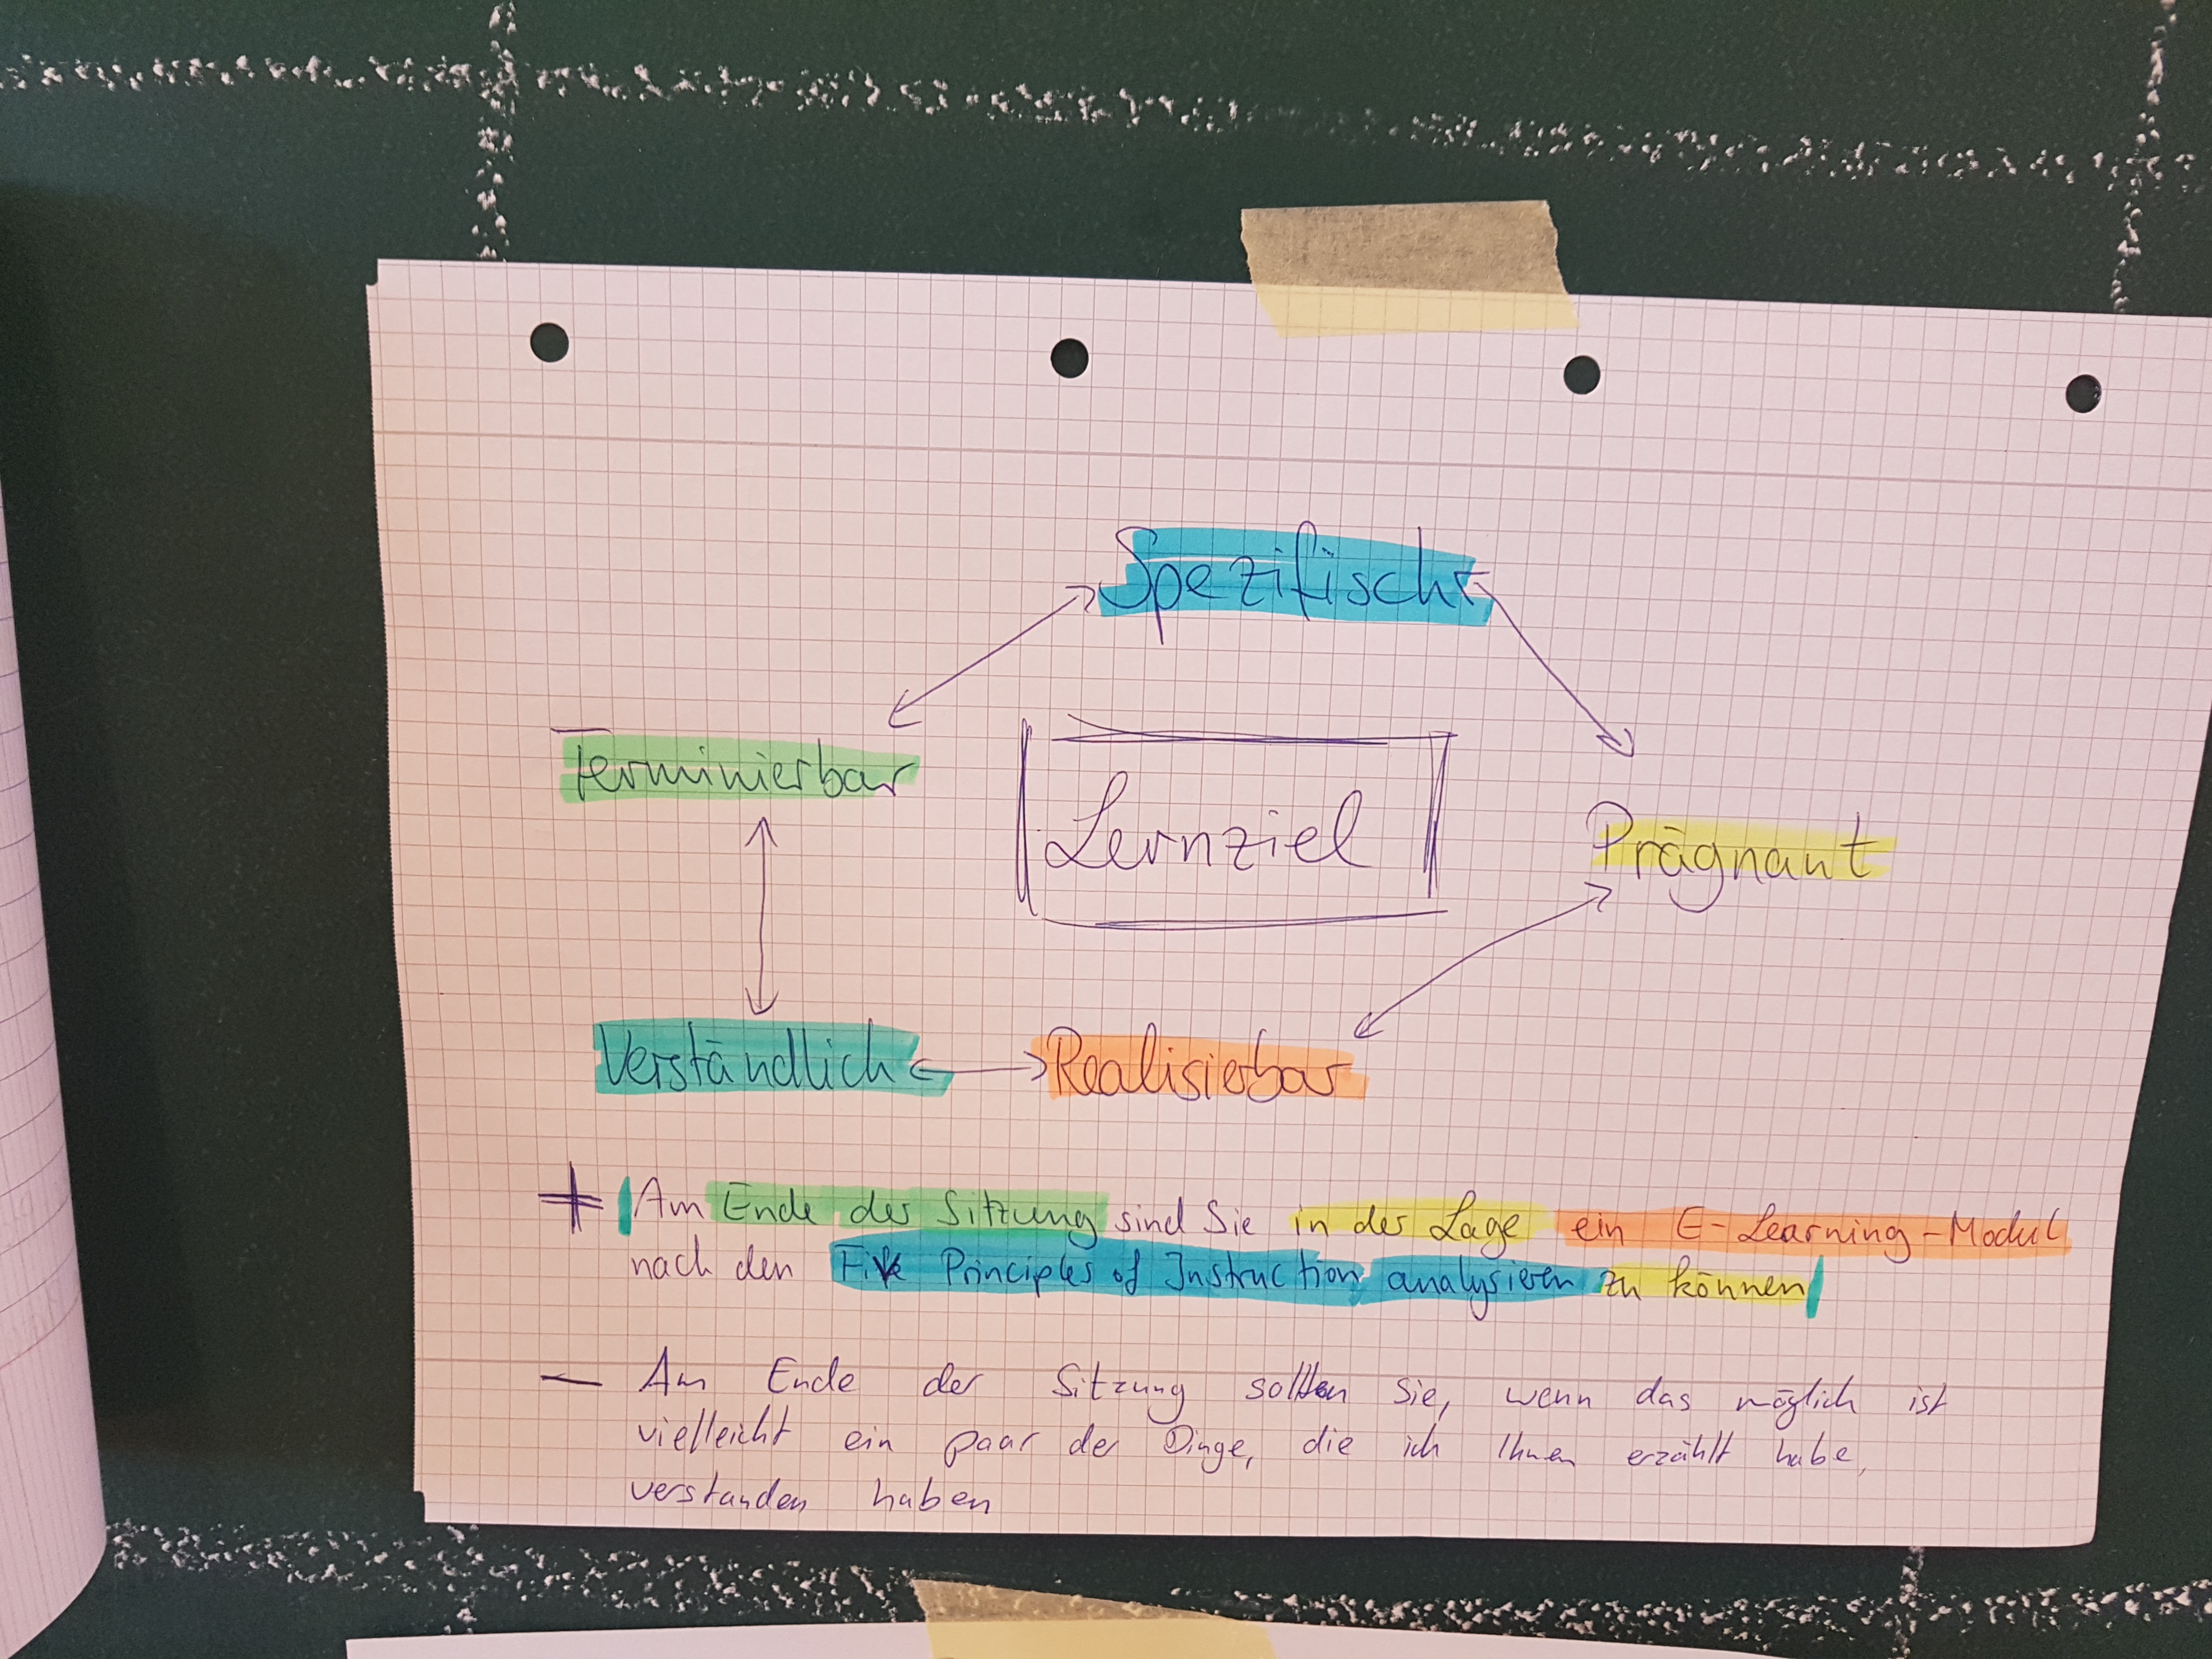 Spezifisch
Terminierbar
Lernziel
Prägnant
Verständlich
Realisierbar
+ Am Ende der Sitzung sind Sie in der Lage ein E-Learning-Modul
nach den Five Principles of Instruction analysieren zu können
- Am Ende der Sitzung sollten Sie, wenn das möglich ist
vielleicht ein paar der Dinge, die ich Ihnen erzählt habe,
verstanden haben